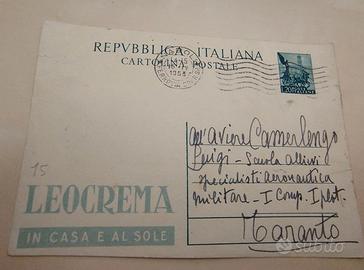 REPVBBLICA ITALIANA
CARTOLINA POSTALE
1954
all'Aviere Camerlengo
Luigi - Scuola allievi
specialisti aeronautica
militare - I Comp. I plot.
Taranto
15
LEOCREMA
IN CASA E AL SOLE
subito